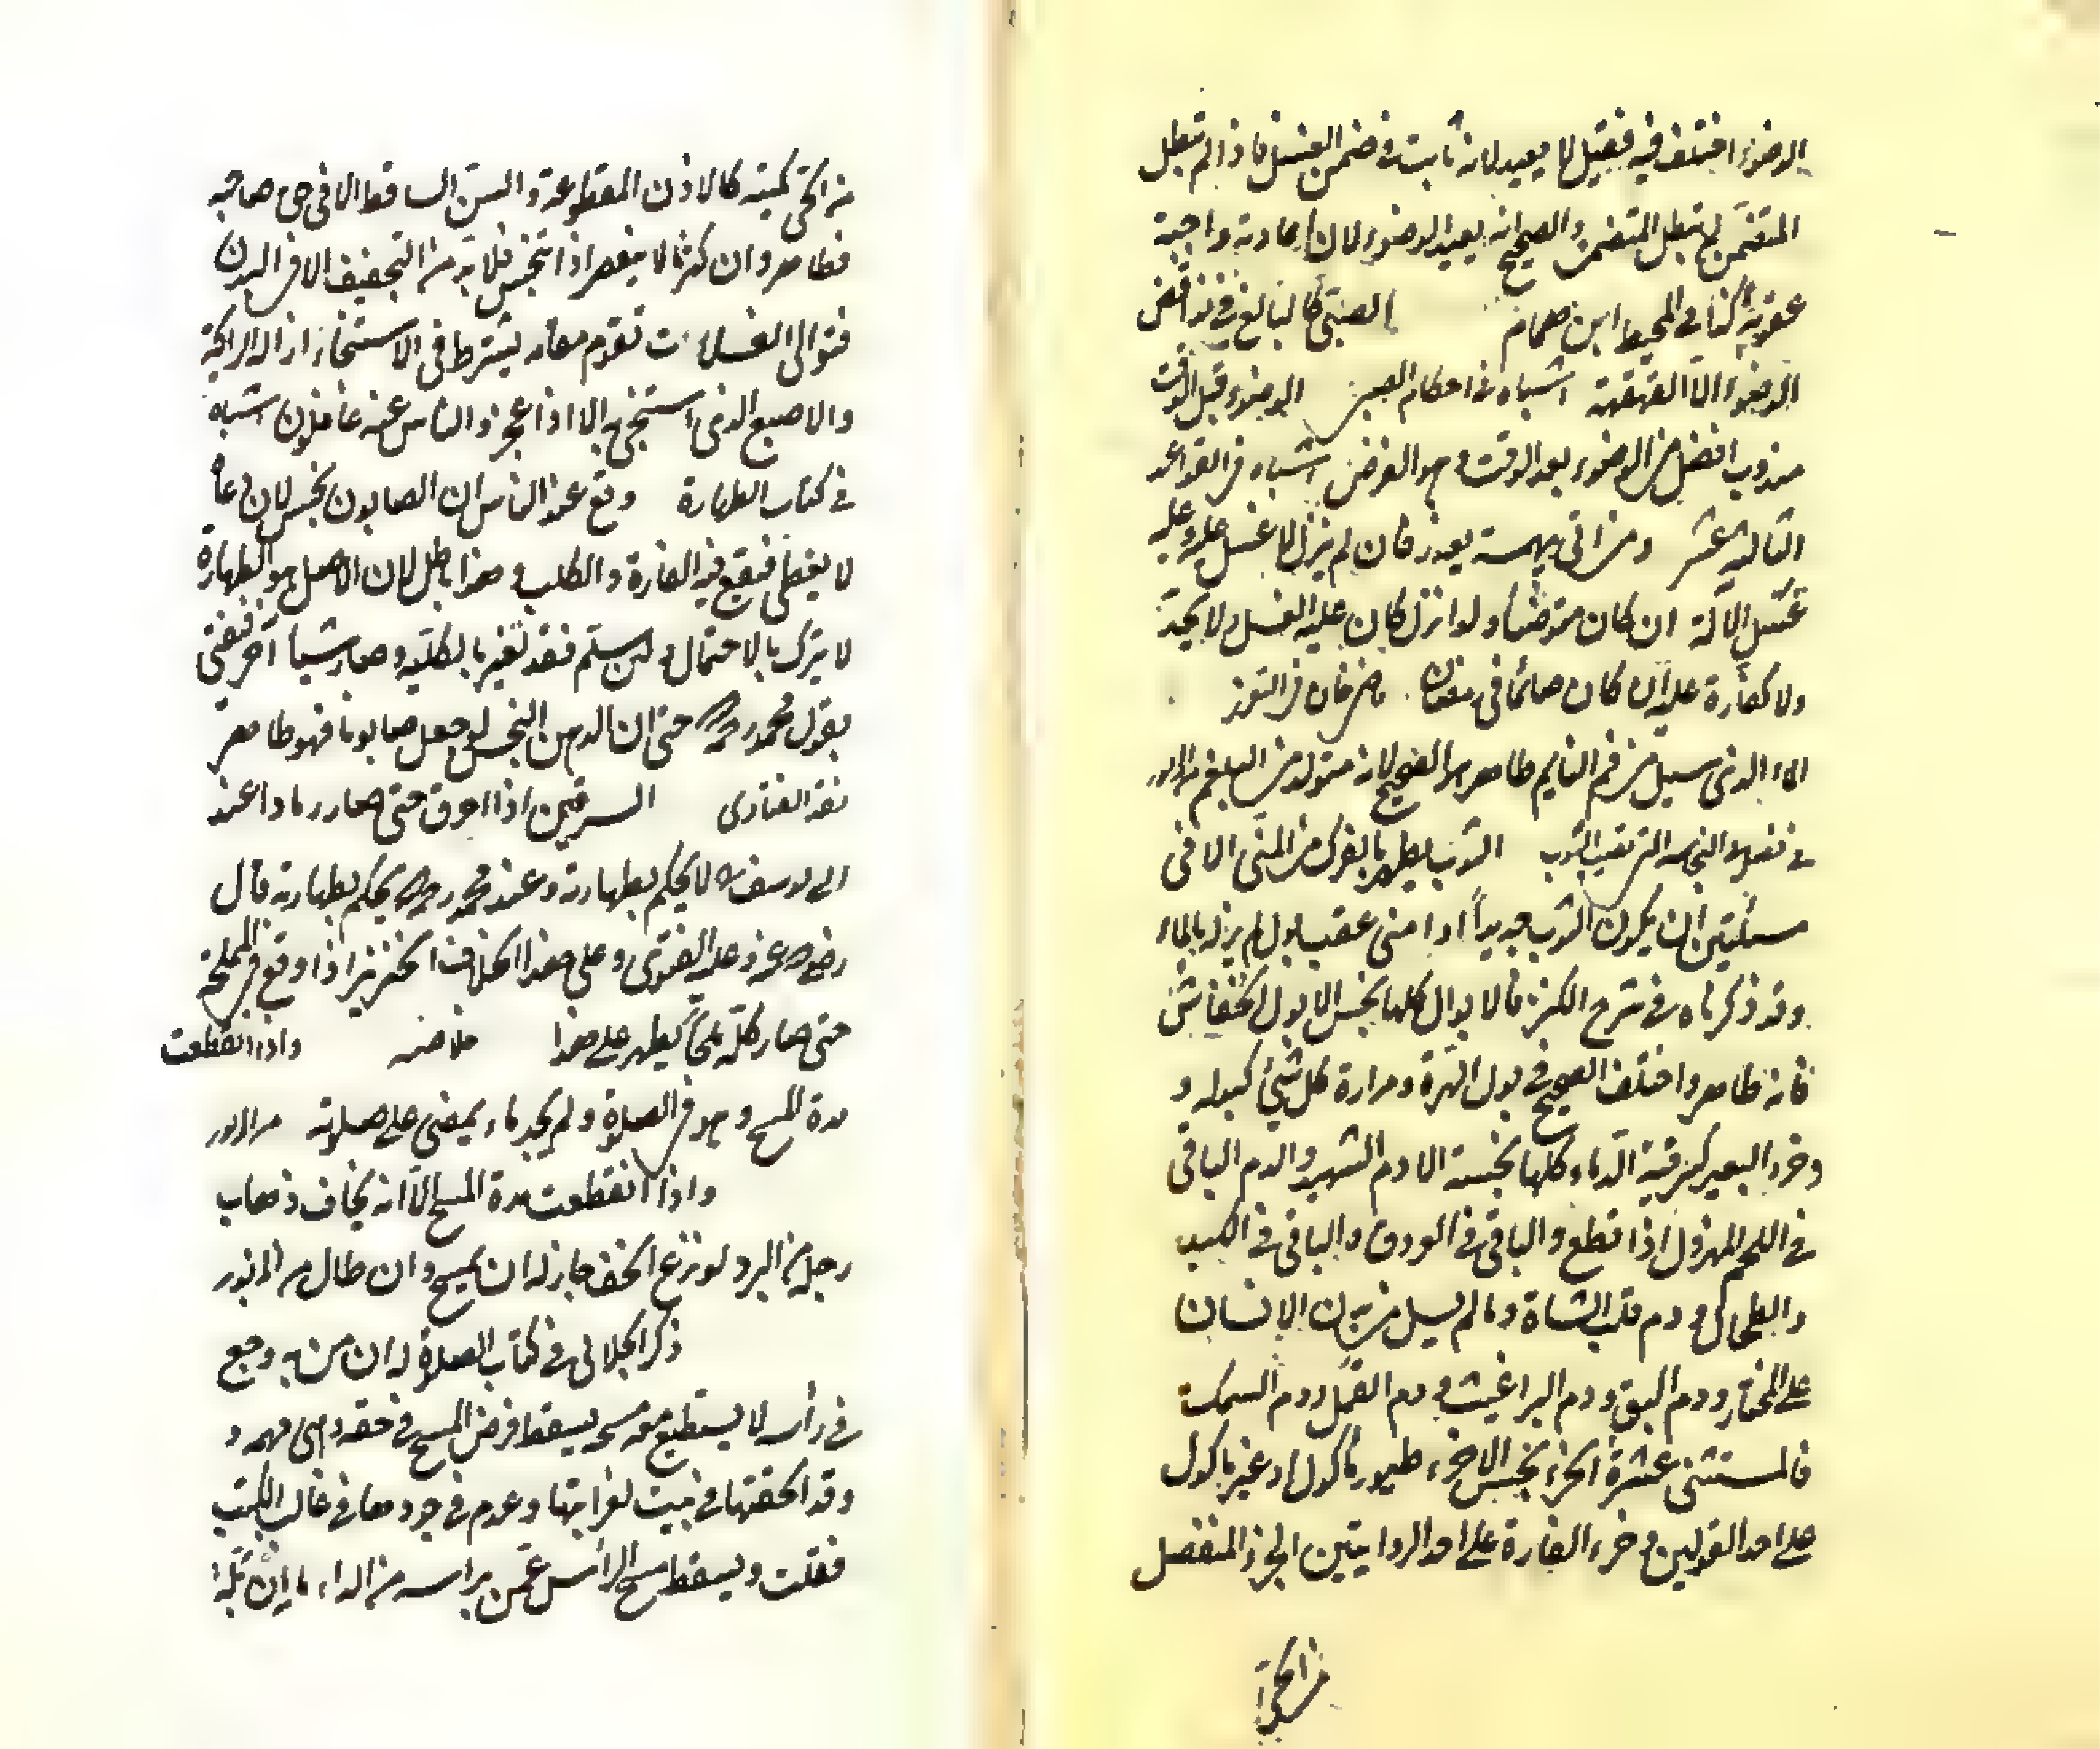 الوضوء اختلف فيه فقيل لا يعيد لانه ثابت في ضمن الغسل فاذا لم تبطل
المتضمن لم تبطل المتضمن والصحيح انه يعيد الوضوء لان اعادته واجبة
عقوبة كذا في المحيط ابن همام الصبي كالبالغ في نواقض
الوضوء الا القهقهة اشباه في احكام الصبيان الوضوء قبل الوقت
مندوب افضل من الوضوء بعد الوقت وهو الفرض اشباه في القواعد
الثالثة عشر ومن اتى بهيمة يعذر فان لم ينزل لا غسل عليه وعليه
غسل الآلة ان كان متوضئا ولو انزل كان عليه الغسل ولا يحد
ولا كفارة عليه ان كان صائما في رمضان قاضيخان في التعزير
الماء الذي يسيل من فم النايم طاهر هو الصحيح لانه متولد من البلغم
في فصل النجاسة التي تصيب الثوب الثوب يطهر بالفرك من المني الا في
مسئلتين ان يكون الثوب جديدا او امنى عقب بول لم يزله بالماء
وقد ذكرناه في شرح الكنز فالابوال كلها نجس الا بول الخفاش
فانه طاهر واختلف الصحيح في بول الهرة ومرارة كل شيئ كبوله و
وخرء البعير كسرقينه الدماء كلها نجسة الا دم الشهيد والدم الباقي
في اللحم المهزول اذا قطع والباقي في العروق والباقي في الكبد
والطحال ودم قلب الشاة وما لم يسل من بدن الانسان
على المختار ودم البق ودم البراغيث ودم القمل ودم السمك
فالمستثنى عشرة الخرء نجس الا خرء طيور مأكول او غير مأكول
على احد القولين وخرء الفارة على احد الروايتين الجزء المنفصل
من الحي
من الحي كميتة كالاذن المقطوعة والسن الساقط الا في حق صاحبه
فطاهر وان كثر ما لا ينعصر اذا تنجس فلا بد من التجفيف الا في البدن
فتوالي الغسلات تقوم مقامه يشترط في الاستنجاء ازالة الرائحة
والاصبع الذي استنجى به الا اذا عجز والناس عنه غافلون اشباه
في كتاب الطهارة وقع عند الناس ان الصابون نجس لان وعاءه
لا يغطى فتقع فيه الفارة والكلب وهذا باطل لان الاصل هو الطهارة
لا يترك بالاحتمال ولئن سلم فقد تغير بالكلية وصار شيئا آخر فيفتى
بقول محمد رحمه حتى ان الدهن النجس لو جعل صابونا فهو طاهر
نقد الفتاوى السرقين اذا احرق حتى صار رمادا عند
ابي يوسف لا يحكم بطهارته وعند محمد رحمه يحكم بطهارته قال
رضي عنه وعليه الفتوى وعلى هذا الخلاف الخنزير اذا وقع في المملحة
حتى صار كله ملحا يطهر على هذا خلاصه واذا انقطعت
مدة المسح وهو في الصلاة ولم يجد ماء يمضي على صلاته
واذا انقطعت مدة المسح الا انه يخاف ذهاب
رجله من البرد لو نزع الخف جاز له ان يمسح وان طال
ذكر الجلابي في كتاب الصلاة له ان من به وجع
في رأسه لا يستطيع معه مسحه يسقط فرض المسح في حقه وهي مهمة و
وقد الحقتها في بيت لغرابتها وعدم وجودها في غالب الكتب
فقلت ويسقط مسح الرأس عمن برأسه من الداء ما ان بله